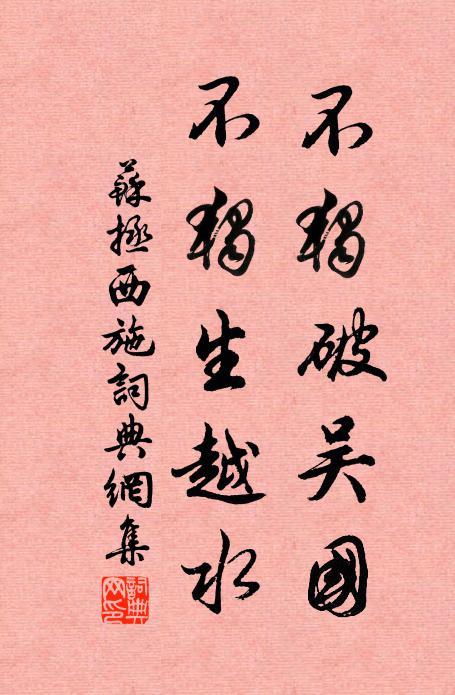 不獨破吴國
不獨生越水
蘇拯西施詞典網集
詞典網印